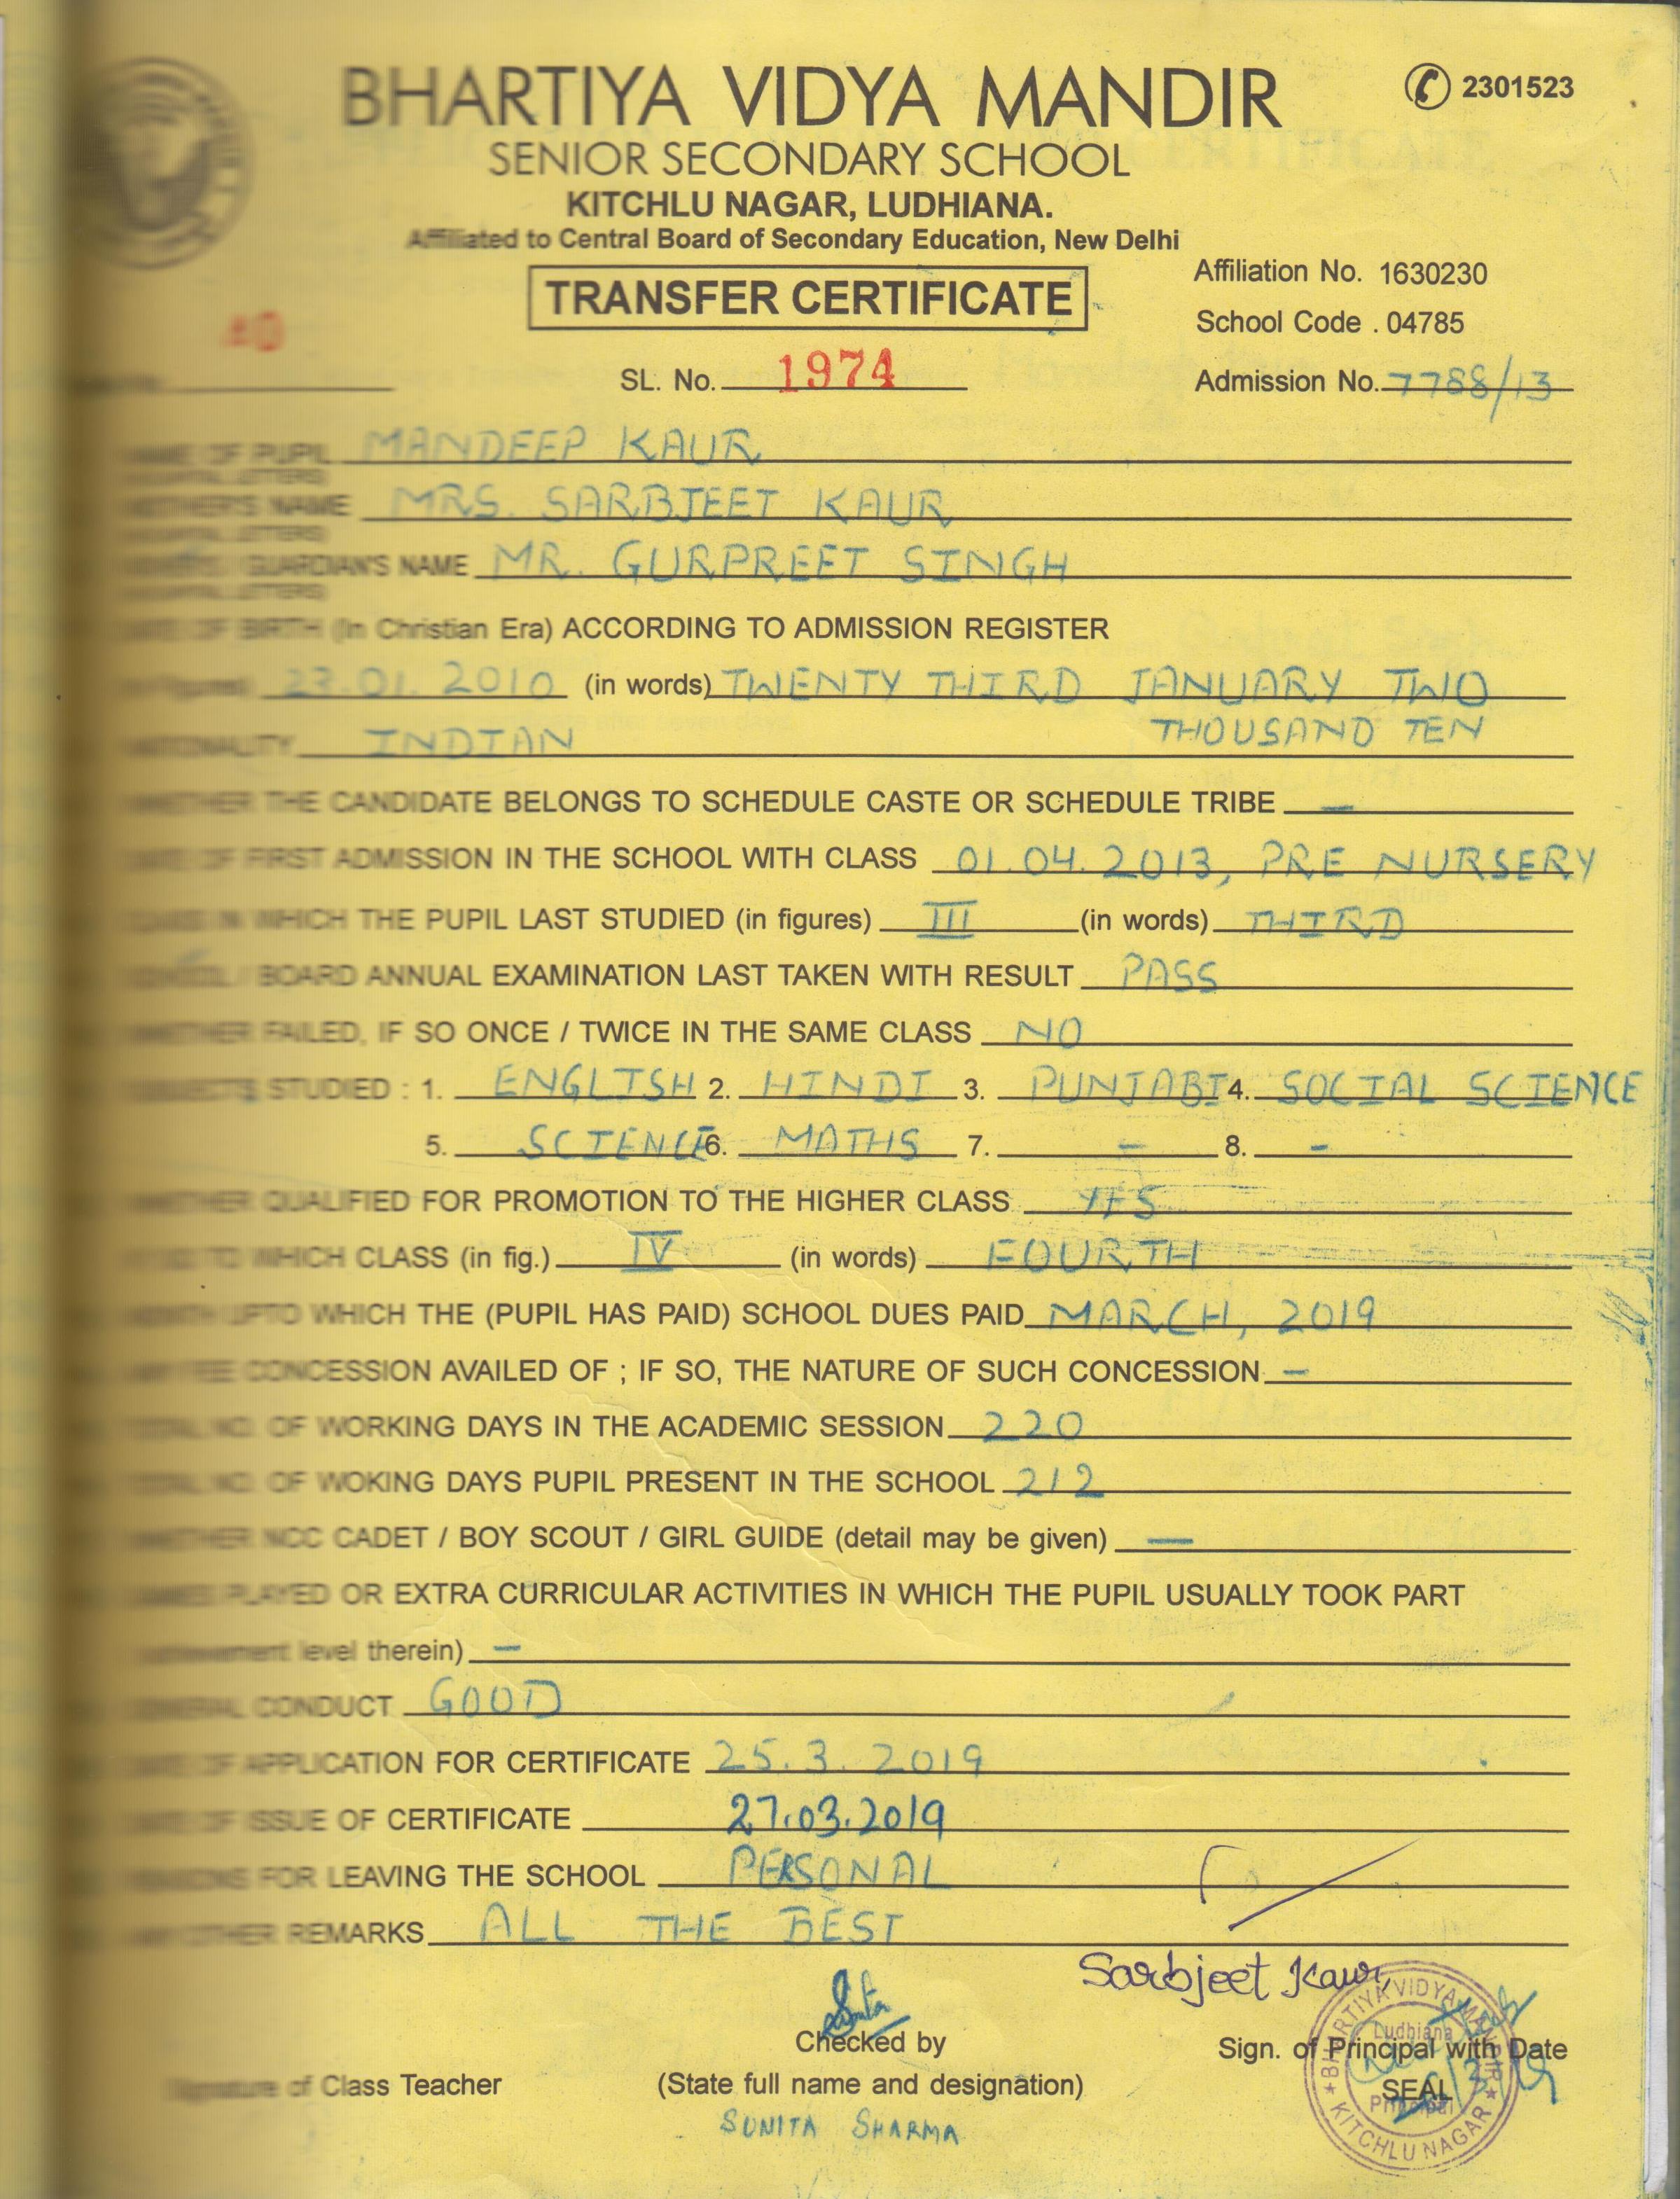 BHARTIYA VIDYA MANDIR
2301523
SENIOR SECONDARY SCHOOL
KITCHLU NAGAR, LUDHIANA.
Affiliated to Central Board of Secondary Education, New Delhi
TRANSFER CERTIFICATE
Affiliation No. 1630230
School Code . 04785
SL. No. 1974
Admission No. 7788/13
NAME OF PUPIL MANDEEP KAUR
(CAPITAL LETTERS)
MOTHER'S NAME MRS. SARBJEET KAUR
(CAPITAL LETTERS)
GUARDIAN'S NAME MR. GURPREET SINGH
(CAPITAL LETTERS)
DATE OF BIRTH (In Christian Era) ACCORDING TO ADMISSION REGISTER
(in figures) 23.01.2010 (in words) TWENTY THIRD JANUARY TWO
THOUSAND TEN
NATIONALITY INDIAN
WHETHER THE CANDIDATE BELONGS TO SCHEDULE CASTE OR SCHEDULE TRIBE —
DATE OF FIRST ADMISSION IN THE SCHOOL WITH CLASS 01.04.2013, PRE NURSERY
CLASS IN WHICH THE PUPIL LAST STUDIED (in figures) III (in words) THIRD
SCHOOL / BOARD ANNUAL EXAMINATION LAST TAKEN WITH RESULT PASS
WHETHER FAILED, IF SO ONCE / TWICE IN THE SAME CLASS NO
SUBJECTS STUDIED : 1. ENGLISH 2. HINDI 3. PUNJABI 4. SOCIAL SCIENCE
5. SCIENCE 6. MATHS 7. - 8. -
WHETHER QUALIFIED FOR PROMOTION TO THE HIGHER CLASS YES
TO WHICH CLASS (in fig.) IV (in words) FOURTH
MONTH UPTO WHICH THE (PUPIL HAS PAID) SCHOOL DUES PAID MARCH, 2019
ANY FEE CONCESSION AVAILED OF ; IF SO, THE NATURE OF SUCH CONCESSION —
TOTAL NO. OF WORKING DAYS IN THE ACADEMIC SESSION 220
TOTAL NO. OF WOKING DAYS PUPIL PRESENT IN THE SCHOOL 212
WHETHER NCC CADET / BOY SCOUT / GIRL GUIDE (detail may be given) —
GAMES PLAYED OR EXTRA CURRICULAR ACTIVITIES IN WHICH THE PUPIL USUALLY TOOK PART
achievement level therein) —
GENERAL CONDUCT GOOD
DATE OF APPLICATION FOR CERTIFICATE 25.3.2019
DATE OF ISSUE OF CERTIFICATE 27.03.2019
REASONS FOR LEAVING THE SCHOOL PERSONAL
ANY OTHER REMARKS ALL THE BEST
Sarbjeet Kaur
Checked by
Sign. of Principal with Date
Signature of Class Teacher
(State full name and designation)
SEAL
SUNITA SHARMA
BHARTIYA VIDYA MANDIR
Ludhiana
Principal
KITCHLU NAGAR